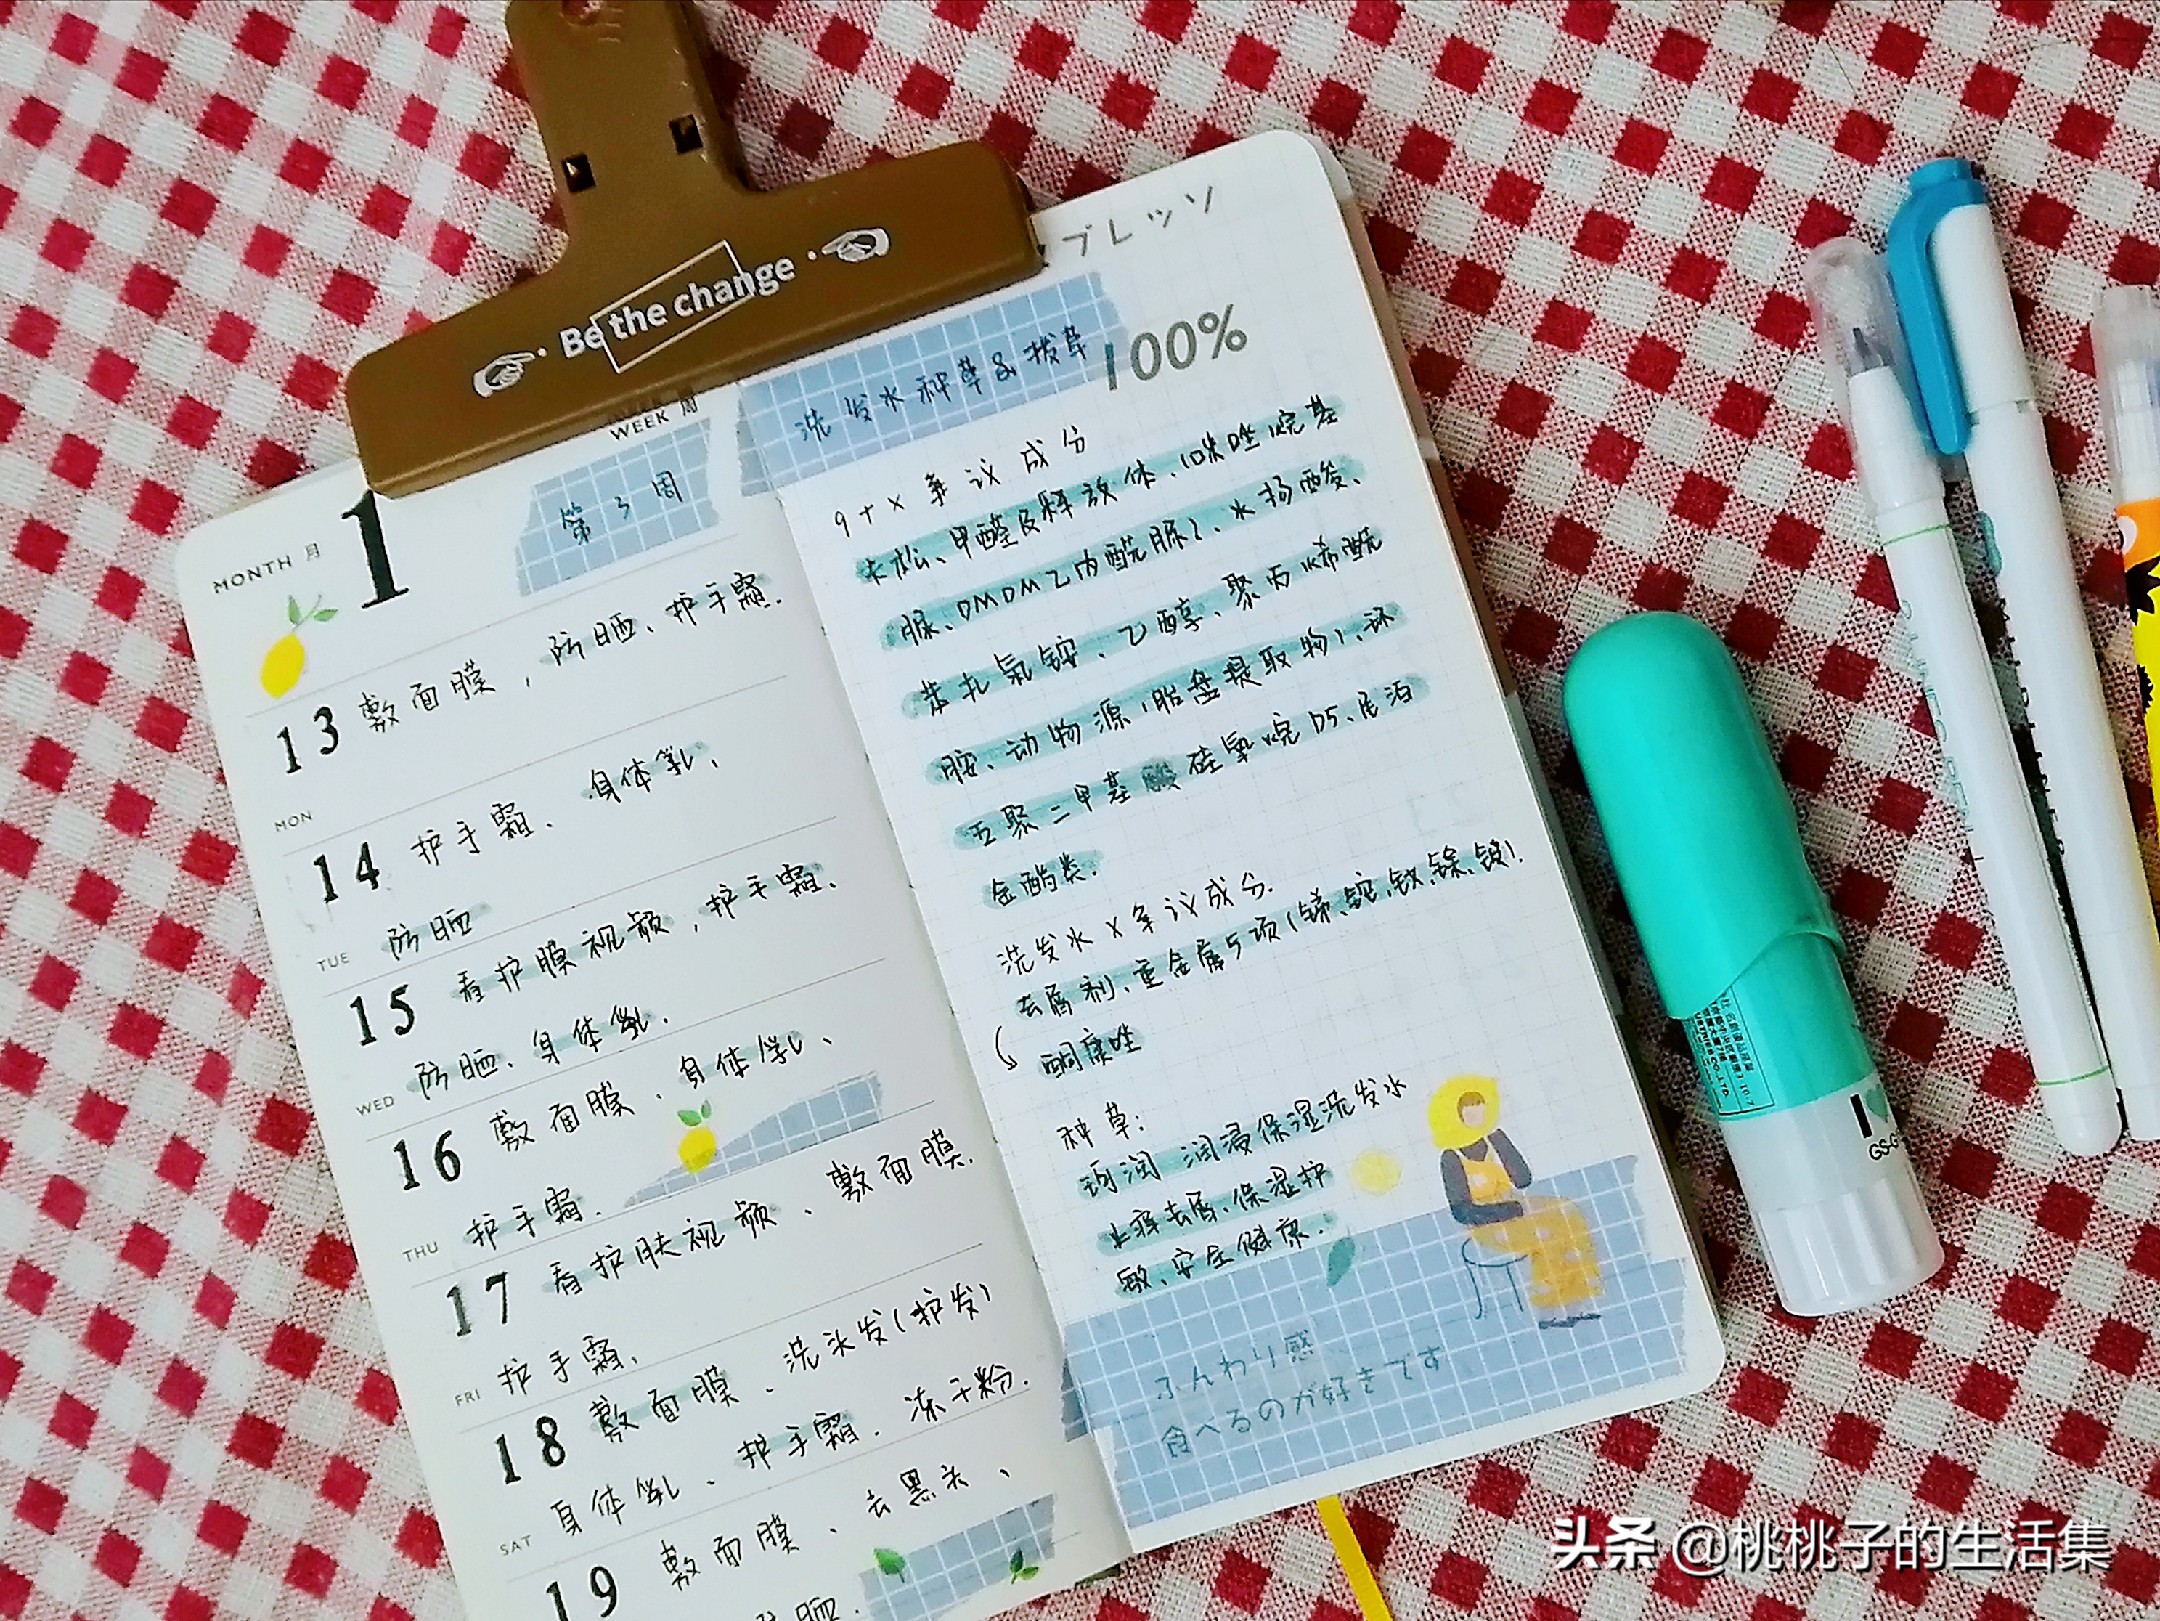 Be the change
WEEK 周
MONTH 月
1
第3周
13 敷面膜，防晒、护手霜.
MON
14 护手霜、身体乳、
防晒
TUE
15 看护膜视频，护手霜、
防晒、身体乳.
WED
16 敷面膜、身体乳、
护手霜.
THU
17 看护肤视频、敷面膜.
护手霜.
FRI
18 敷面膜、洗头发(护发)
身体乳、护手霜.冻干粉.
SAT
19 敷面膜、去黑头、
防晒.
プレッソ
洗发水种草&拔草
100%
9+x争议成分
卡松、甲醛及释放体、(咪唑烷基
脲、DMDM乙内酰脲)、水杨酸、
苯扎氯铵、乙醇、聚丙烯酰
胺、动物源(胎盘提取物)、环
五聚二甲基硅氧烷D5、
金酯类.
洗发水x争议成分.
去屑剂、重金属5项(锑、钕、镉).
酮康唑
种草:
润浸保湿洗发水
止痒去屑、保湿护
敏、安全健康.
ふんわり感
食べるのが好きです
I
GS-G
头条 @桃桃子的生活集